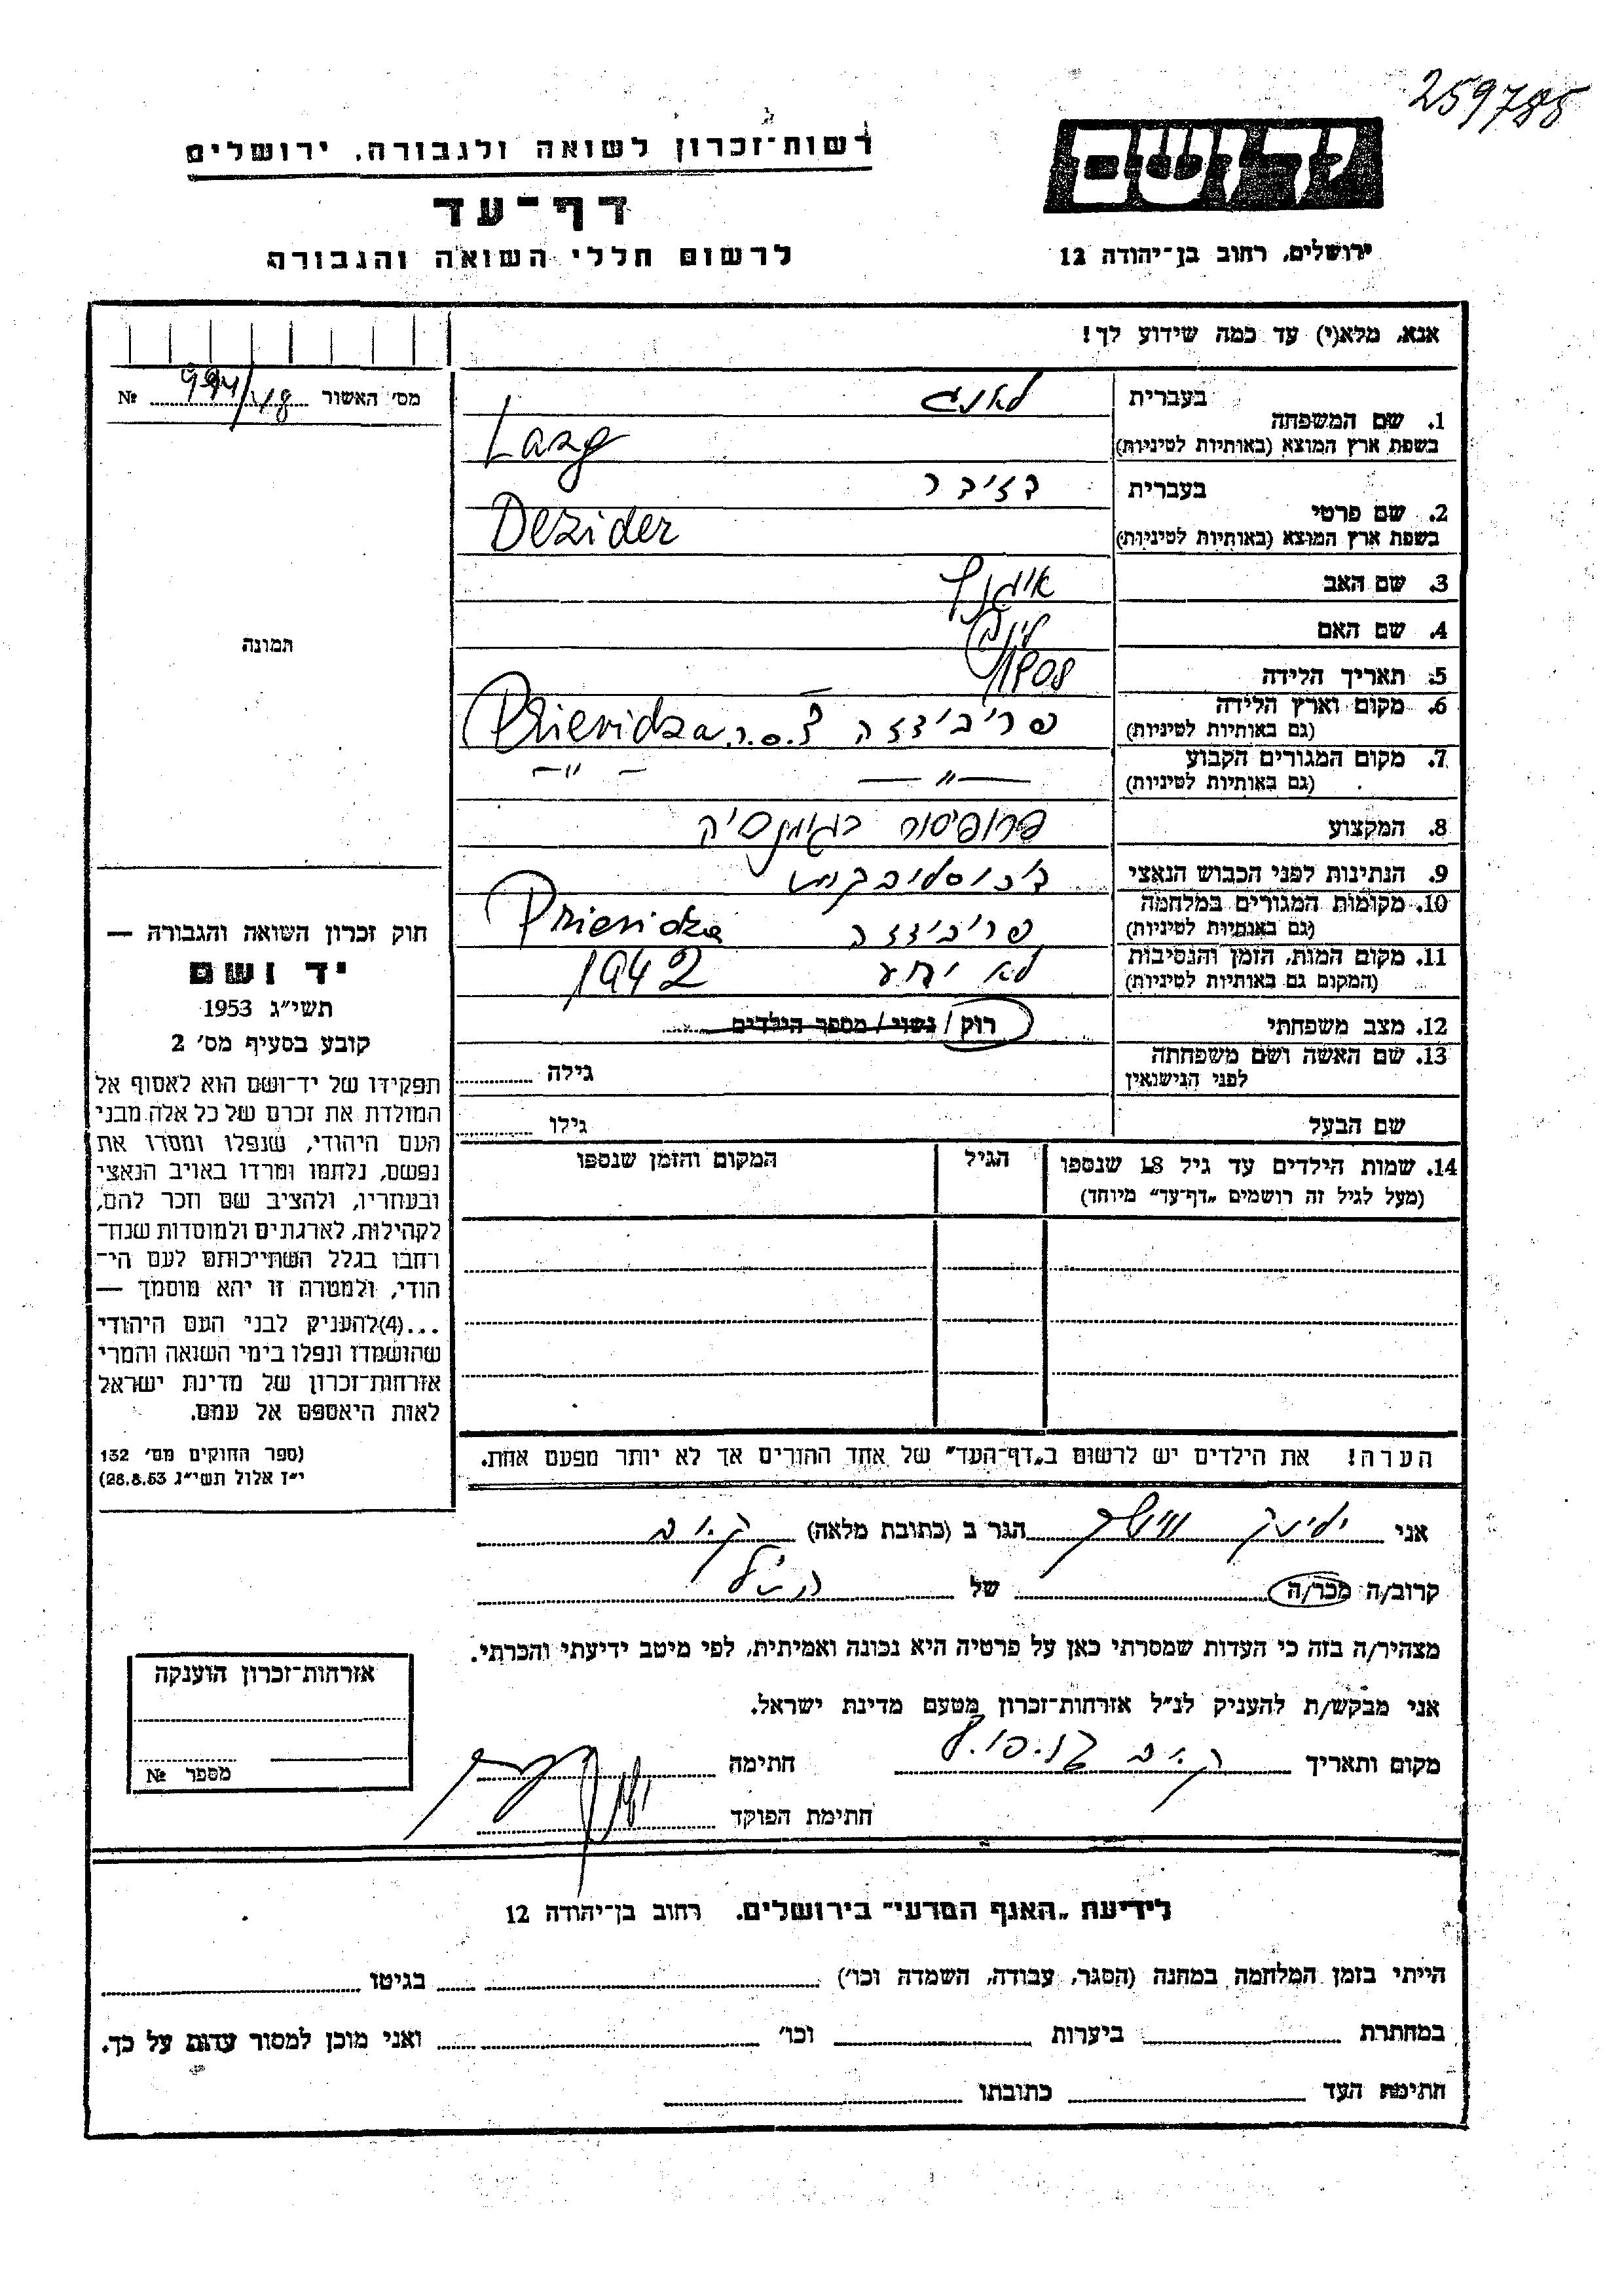 259788
רשות־זכרון לשואה ולגבורה, ירושלים
דף־עד
לרשום חללי השואה והגבורה
ידושם
ירושלים, רחוב בן־יהודה 12
אנא, מלא(י) עד כמה שידוע לך!
מס' האשור 994/48 №
תמונה
חוק זכרון השואה והגבורה —
יד ושם
תשי״ג 1953
קובע בסעיף מס' 2
תפקידו של יד־ושם הוא לאסוף אל
המולדת את זכרם של כל אלה מבני
העם היהודי, שנפלו ומסרו את
נפשם, נלחמו ומרדו באויב הנאצי
ובעוזריו, ולהציב שם וזכר להם,
לקהילות, לארגונים ולמוסדות שנח־
רחבו בגלל השתייכותם לעם הי־
הודי, ולמטרה זו יהא מוסמך —
...(4)להעניק לבני העם היהודי
שהושמדו ונפלו בימי השואה והמרי
אזרחות־זכרון של מדינת ישראל
לאות היאספם אל עמם.
(ספר החוקים מס' 132
י״ז אלול תשי״ג 28.8.53)
בעברית לאנג
1. שם המשפחה
בשפת ארץ המוצא (באותיות לטיניות) Lang
בעברית דזידר
2. שם פרטי
בשפת ארץ המוצא (באותיות לטיניות) Dezider
3. שם האב
4. שם האם
5. תאריך הלידה 1908
6. מקום וארץ הלידה פריבידזה צ.ס.ר. Prievidza
(גם באותיות לטיניות)
7. מקום המגורים הקבוע — " — — " —
(גם באותיות לטיניות)
8. המקצוע פרופיסור בגימנסיה
9. הנתינות לפני הכבוש הנאצי
10. מקומות המגורים במלחמה פריבידזה Prievidza
(גם באותיות לטיניות)
11. מקום המות, הזמן והנסיבות לא ידוע 1942
(המקום גם באותיות לטיניות)
12. מצב משפחתי רוק / נשוי / מספר הילדים
13. שם האשה ושם משפחתה גילה
לפני הנישואין
שם הבעל גילו
14. שמות הילדים עד גיל 18 שנספו הגיל המקום והזמן שנספו
(מעל לגיל זה רושמים „דף־עד״ מיוחד)
הערה! את הילדים יש לרשום ב„דף־העד״ של אחד ההורים אך לא יותר מפעם אחת.
אני הגר ב (כתובת מלאה)
קרוב/ה מכר/ה של
מצהיר/ה בזה כי העדות שמסרתי כאן על פרטיה היא נכונה ואמיתית, לפי מיטב ידיעתי והכרתי.
אני מבקש/ת להעניק לנ״ל אזרחות־זכרון מטעם מדינת ישראל.
מקום ותאריך חתימה
חתימת הפוקד
אזרחות־זכרון הוענקה
מספר №
לידיעת „האגף המדעי״ בירושלים, רחוב בן־יהודה 12
הייתי בזמן המלחמה במחנה (הסגר, עבודה, השמדה וכו') בגיטו
במחתרת ביערות וכו' ואני מוכן למסור עדות על כך.
חתימת העד כתובתו